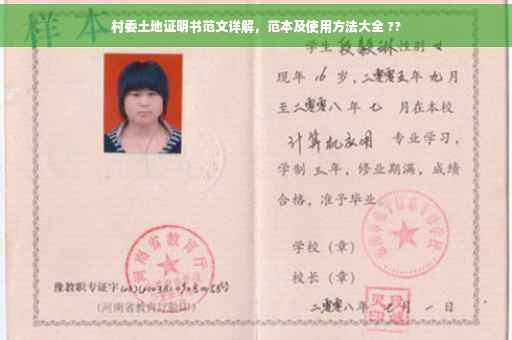 村委土地证明书范文详解，范本及使用方法大全 ??
样本
学生 段毅琳 性别 女
现年 16 岁，二零零五年 九月
至二零零八年 七 月在本校
计算机应用 专业学习，
学制 三年，修业期满，成绩
合格，准予毕业。
学校（章）
校长（章）
河南省教育厅
豫教职专证字
（河南省教育厅验印）
二零零八年 七 月 一 日